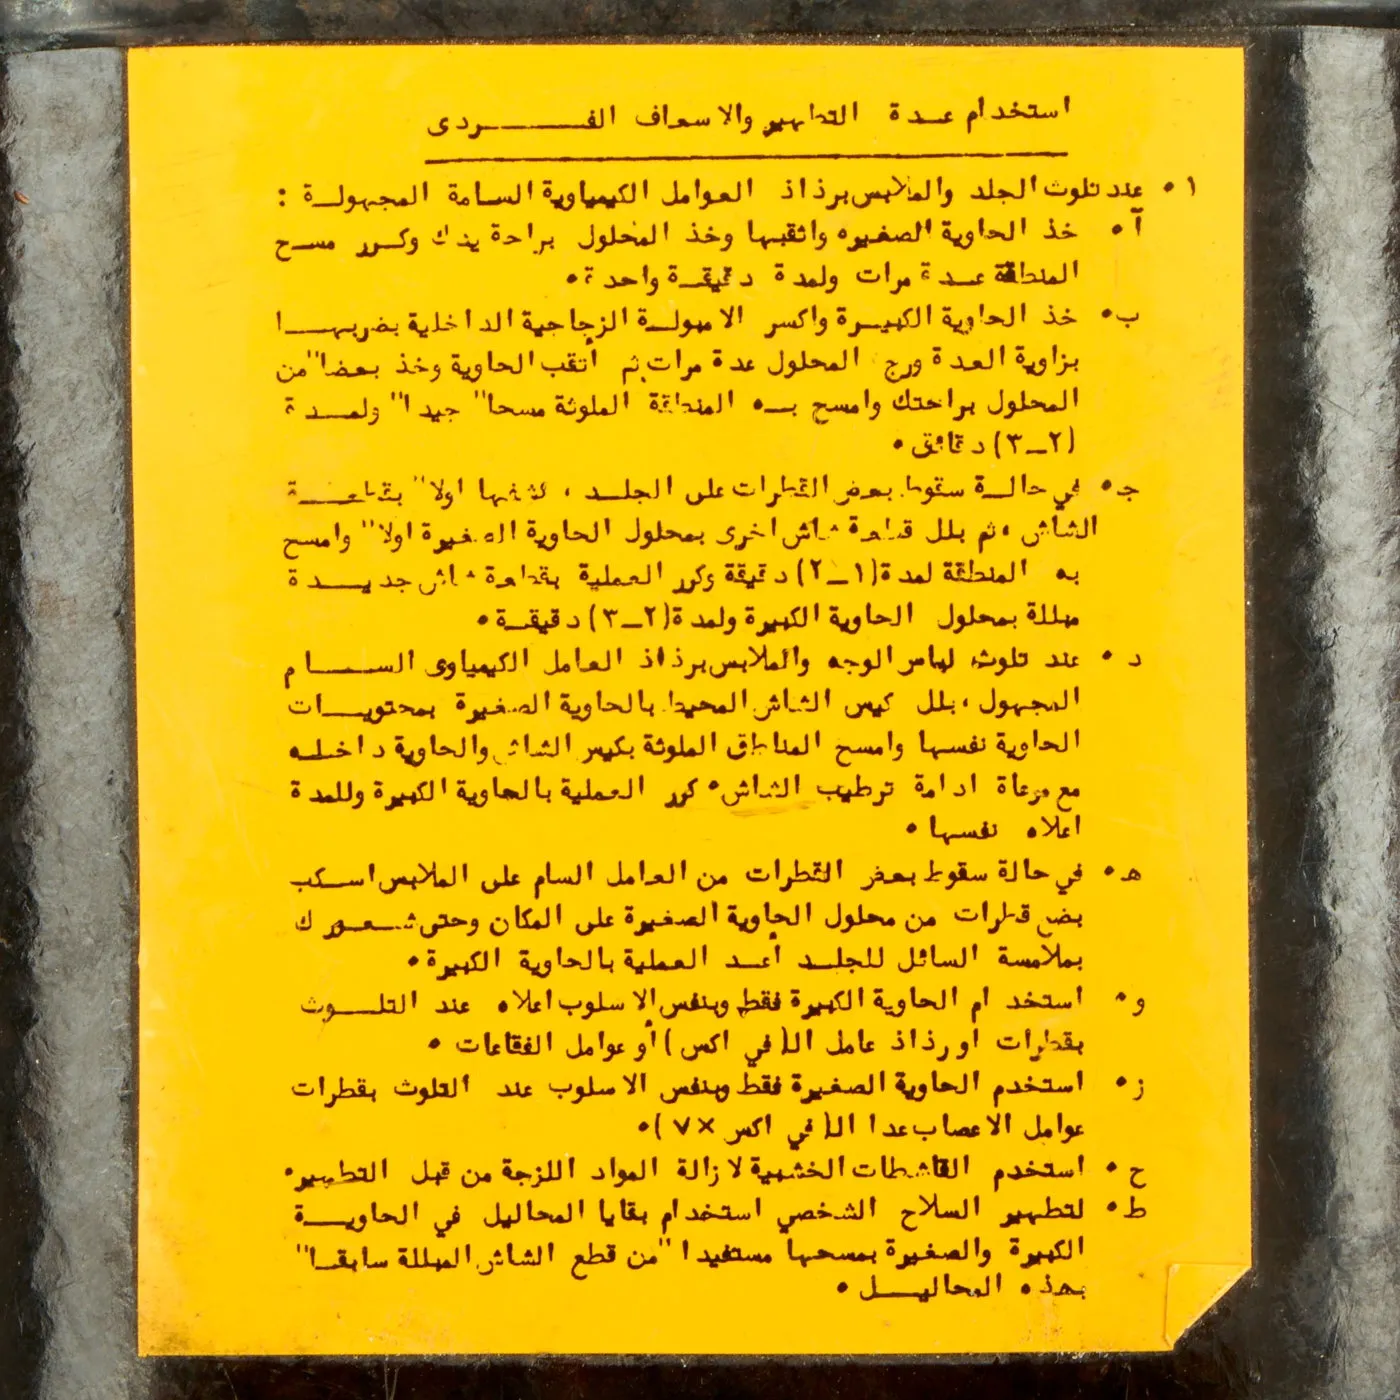 استخدام عدة التطهير والاسعاف الفردى
١. عند تلوث الجلد والملابس برذاذ العوامل الكيمياوية السامة المجهولة :
آ. خذ الحاوية الصغيره واثقبها وخذ المحلول براحة يدك وكرر مسح
المنطقة عدة مرات ولمدة دقيقة واحدة.
ب. خذ الحاوية الكبيرة واكسر الامبولة الزجاجية الداخلية بضربها
بزاوية العدة ورج المحلول عدة مرات ثم أثقب الحاوية وخذ بعضا" من
المحلول براحتك وامسح به المنطقة الملوثة مسحا" جيدا" ولمدة
(٢-٣) دقائق.
جـ. في حالة سقوط بعض القطرات على الجلد ، نشفها اولا" بقطعة
الشاش ، ثم بلل قطعة شاش اخرى بمحلول الحاوية الصغيرة اولا" وامسح
به المنطقة لمدة (١-٢) دقيقة وكرر العملية بقطعة شاش جديدة
مبللة بمحلول الحاوية الكبيرة ولمدة (٢-٣) دقيقة.
د. عند تلوث لباس الوجه والملابس برذاذ العامل الكيمياوى السام
المجهول ، بلل كيس الشاش المحيط بالحاوية الصغيرة بمحتويات
الحاوية نفسها وامسح المناطق الملوثة بكيس الشاش والحاوية داخله
مع مرعاة ادامة ترطيب الشاش. كرر العملية بالحاوية الكبيرة وللمدة
اعلاه نفسها.
هـ. في حالة سقوط بعض القطرات من العامل السام على الملابس اسكب
بضع قطرات من محلول الحاوية الصغيرة على المكان وحتى شعورك
بملامسة السائل للجلد أعد العملية بالحاوية الكبيرة.
و. استخدام الحاوية الكبيرة فقط وبنفس الاسلوب اعلاه عند التلوث
بقطرات او رذاذ عامل الـ(في اكس) أو عوامل الفقاعات.
ز. استخدم الحاوية الصغيرة فقط وبنفس الاسلوب عند التلوث بقطرات
عوامل الاعصاب عدا الـ(في اكس V×).
ح. استخدم القاشطات الخشبية لازالة المواد اللزجة من قبل التطهير.
ط. لتطهير السلاح الشخصي استخدام بقايا المحاليل في الحاوية
الكبيرة والصغيرة بمسحها مستفيدا" من قطع الشاش المبللة سابقا"
بهذه المحاليل.